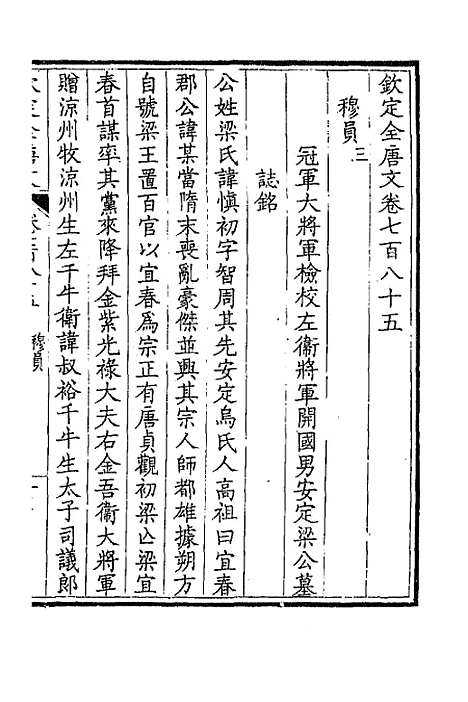 欽定全唐文卷七百八十五
穆員三
冠軍大將軍檢校左衞將軍開國男安定梁公墓
誌銘
公姓梁氏諱慎初字智周其先安定烏氏人高祖曰宜春
郡公諱某當隋末喪亂豪傑並興其宗人師都雄據朔方
自號梁王置百官以宜春爲宗正有唐貞觀初梁亾梁宜
春首謀率其黨來降拜金紫光祿大夫右金吾衞大將軍
贈涼州牧涼州生左千牛衞諱叔裕千牛生太子司議郞
欽定全唐文
卷七百八十五
穆員
一